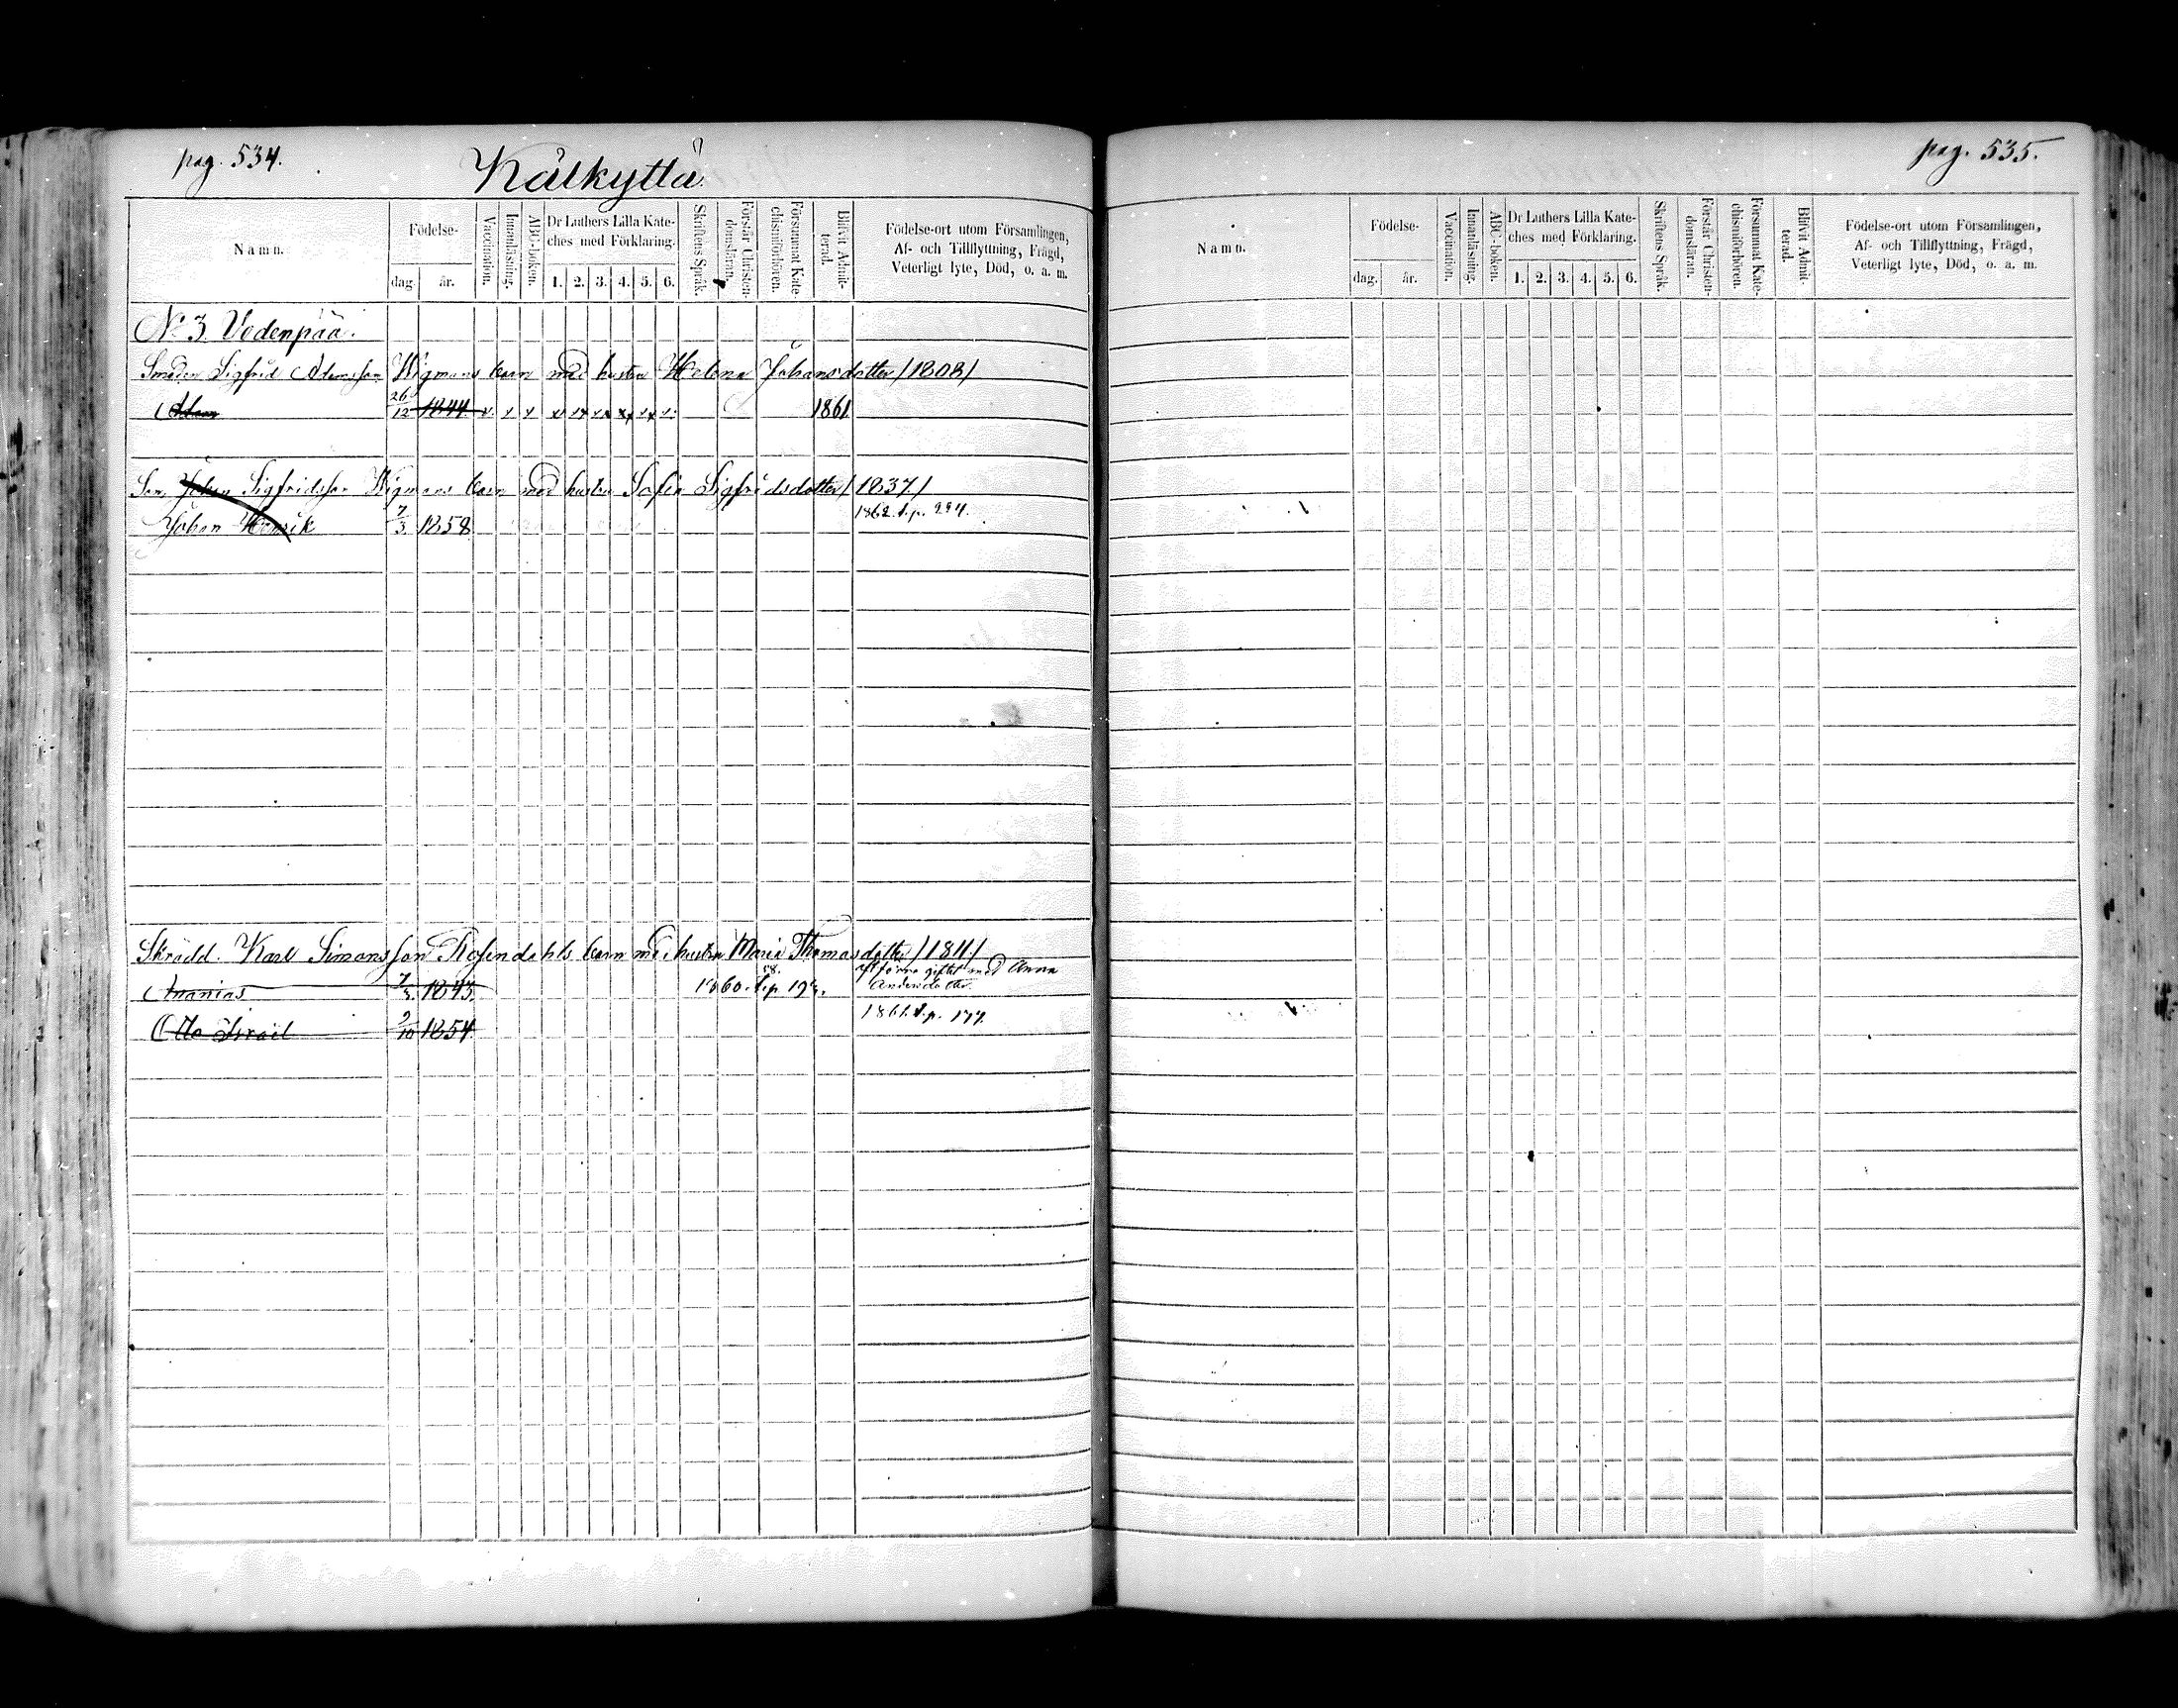 pag. 534.
Kälkyttä
Namn.
Födelse-
dag.
år.
Vaccination.
Innanläsning.
ABC-boken.
Dr Luthers Lilla Kate-
ches med Förklaring.
1. 2. 3. 4. 5. 6.
Skriftens Språk.
Förstår Christen-
domsläran.
Försummat Kate-
chismiförhören.
Blifvit Admit-
terad.
Födelse-ort utom Församlingen,
Af- och Tillflyttning, Frägd,
Veterligt lyte, Död, o. a. m.
No 3. Vedenpää.
Smeden Sigfrid Adamsson Wigmans barn med hustru Helena Johansdotter /1808/
Adam 26/12 1844 1861
Son Johan Sigfridsson Wigmans barn med hustru Sofia Sigfridsdotter /1837/
Johan Henrik 7/3 1858 1862 s.p. 294.
Skrädd. Karl Simonsson Rosendahls barn med hustru Maria Thomasdotter /1811/
af förra giftet med Anna
Andersdotter.
Ananias 1843. 1860
Otto Israil 9/10 1854 1861 s.p. 177.
pag. 535.
Namn.
Födelse-
dag.
år.
Vaccination.
Innanläsning.
ABC-boken.
Dr Luthers Lilla Kate-
ches med Förklaring.
1. 2. 3. 4. 5. 6.
Skriftens Språk.
Förstår Christen-
domsläran.
Försummat Kate-
chismiförhören.
Blifvit Admit-
terad.
Födelse-ort utom Församlingen,
Af- och Tillflyttning, Frägd,
Veterligt lyte, Död, o. a. m.